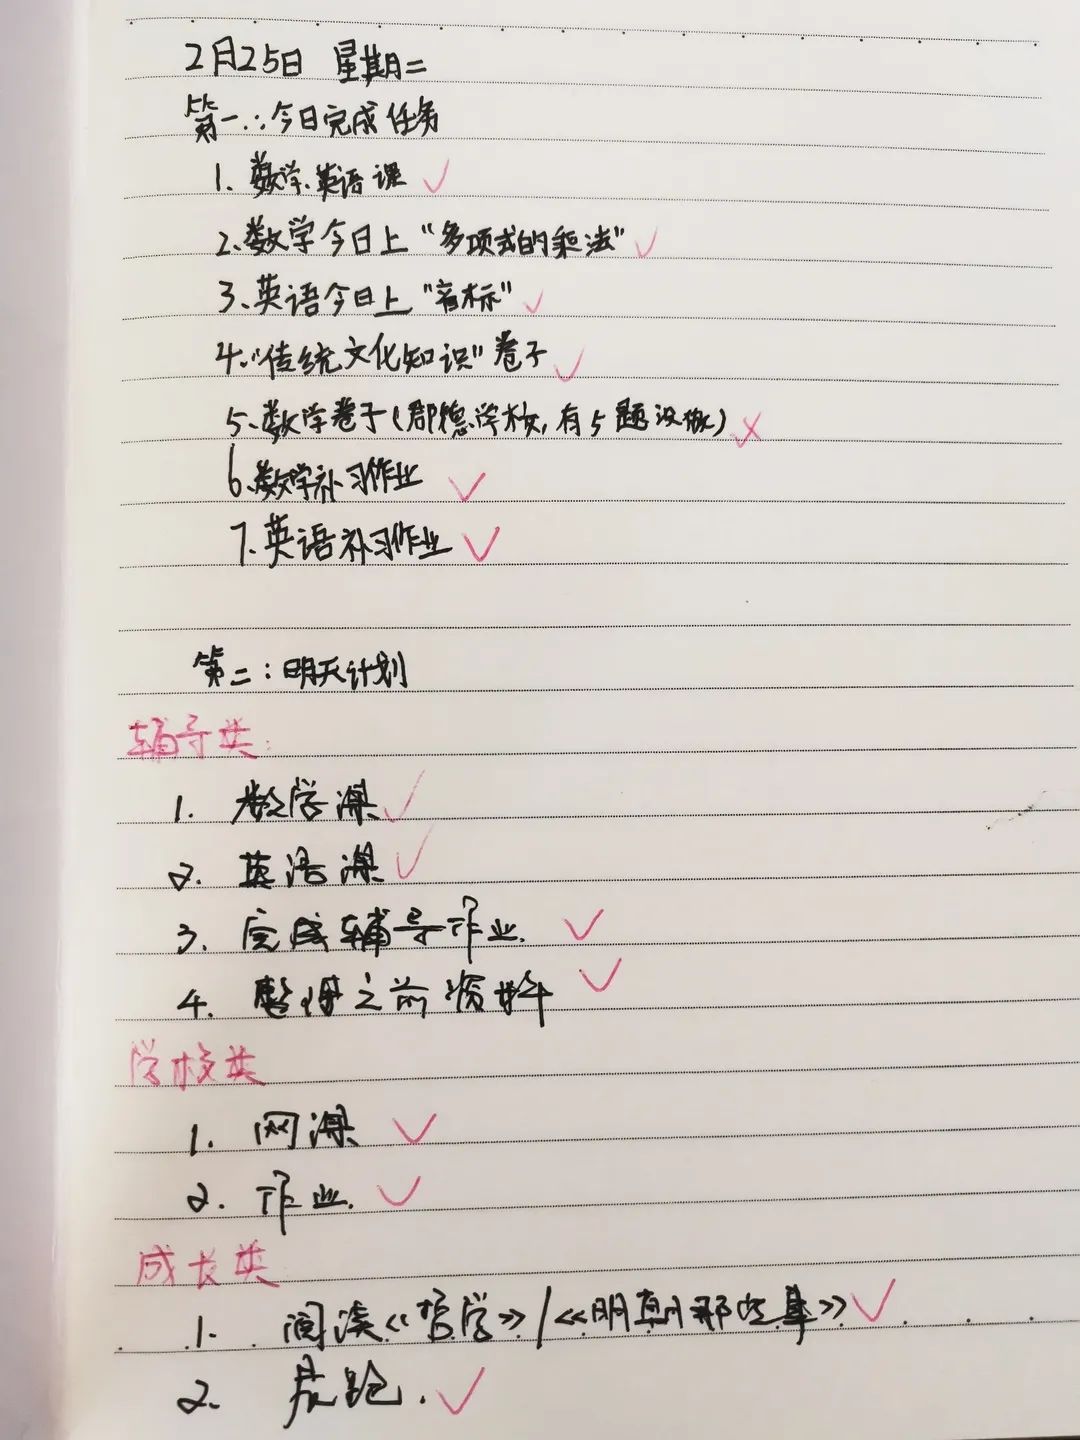 2月25日 星期二
第一:今日完成任务
1、数学、英语课
2、数学今日上“多项式的乘法”
3、英语今日上“音标”
4、“传统文化知识”卷子
5、数学卷子(郡德学校,有5题没做)
6、数学补习作业
7、英语补习作业
第二:明天计划
辅导类:
1. 数学课
2. 英语课
3. 完成辅导作业.
4. 整理之前资料
学校类
1. 网课
2. 作业.
成长类
1. 阅读《哲学》/《明朝那些事》
2. 晨跑.